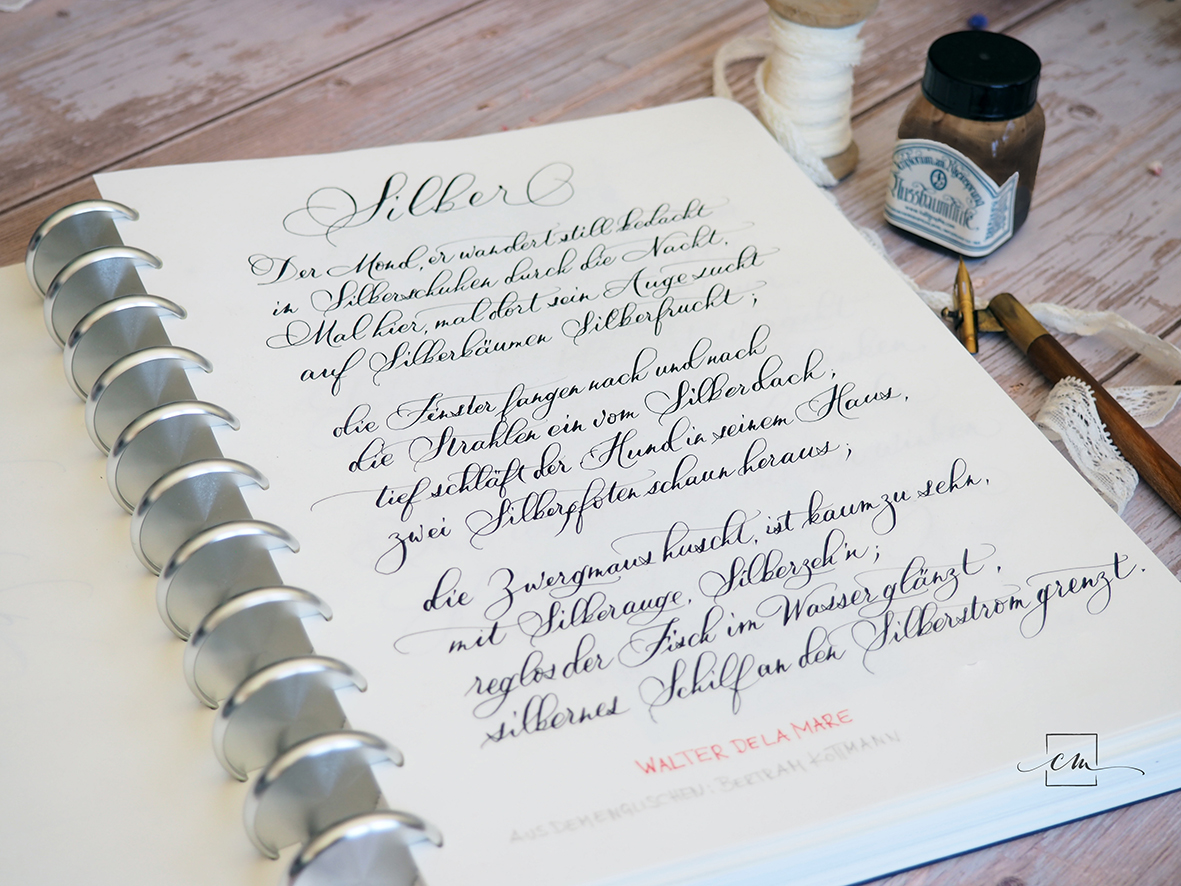 Silber
Der Mond, er wandert still bedacht
in Silberschuhen durch die Nacht.
Mal hier, mal dort sein Auge sucht
auf Silberbäumen Silberfrucht;
die Fenster fangen nach und nach
die Strahlen ein vom Silberdach;
tief schläft der Hund in seinem Haus,
zwei Silberpfoten schaun heraus;
die Zwergmaus huscht, ist kaum zu sehn,
mit Silberauge, Silberzeh'n;
reglos der Fisch im Wasser glänzt,
silbernes Schilf an den Silberstrom grenzt.
WALTER DE LA MARE
AUS DEM ENGLISCHEN: BERTRAM KOTTMANN
Nussbaumtinte
cm